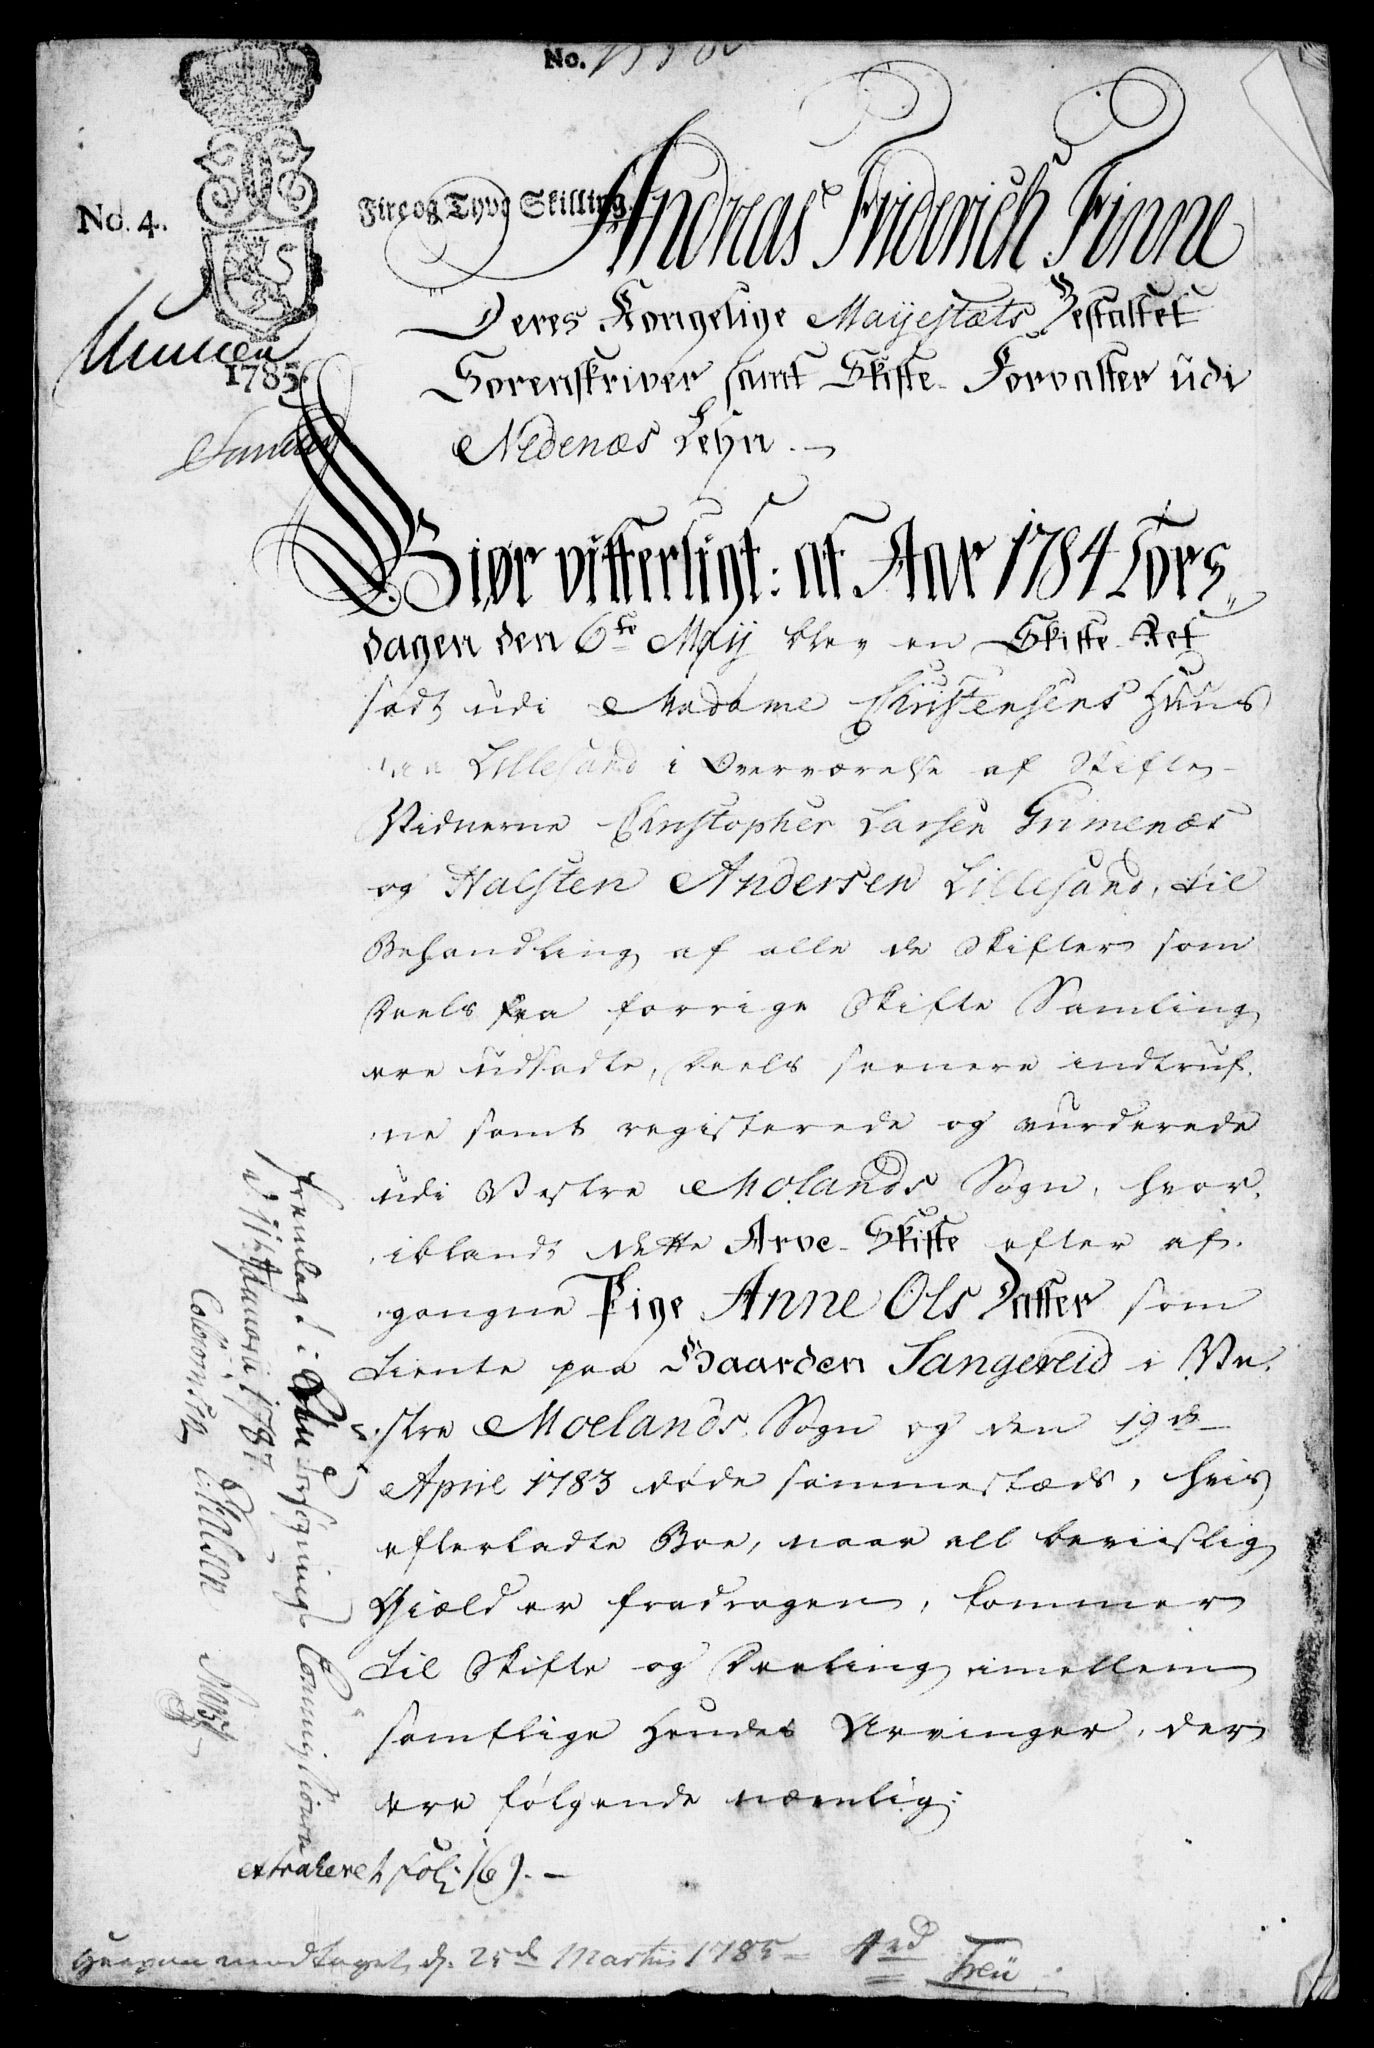 No.
No. 4.
Fire og Tyve Skilling.
1785.
Andreas Friderich Finne
Deres Kongelige Mayestæts Bestaltet
Sorenskriver samt Skifte-Forvalter udi
Nedenæs Lehn.
Giør vitterligt: at Aar 1784 Tors-
dagen den 6te Maij blev en Skifte-Ret
sadt udi Madame Christensens Huus
paa Lillesand i Overværelse af Skifte-
Vidnerne Christopher Larsen Grimenæs
og Halsten Andersen Lillesand, til
Behandling af alle de Skifter som
deels fra forrige Skifte Samling
ere udsadte, deels seenere indtruf-
ne samt registerede og vurderede
udi Vestre Molands Sogn, hvor-
iblandt dette Arve-Skifte efter af-
gangne Pige Anne Ols Datter som
tiente paa Gaarden Sangereid i Ve-
stre Moelands Sogn og den 19de
April 1783 døde sammestæds, hvis
efterladte Boe, naar all beviislig
Giæld er fradragen, kommer
til Skifte og Deeling imellem
samtlige hendes Arvinger, der
ere følgende næmlig:
Fremlagt i Undersøgnings Commissionen
d. 11te Januarii 1787.
extraheret Fol: 169.
Hæran modtaget d. 25de Martii 1785